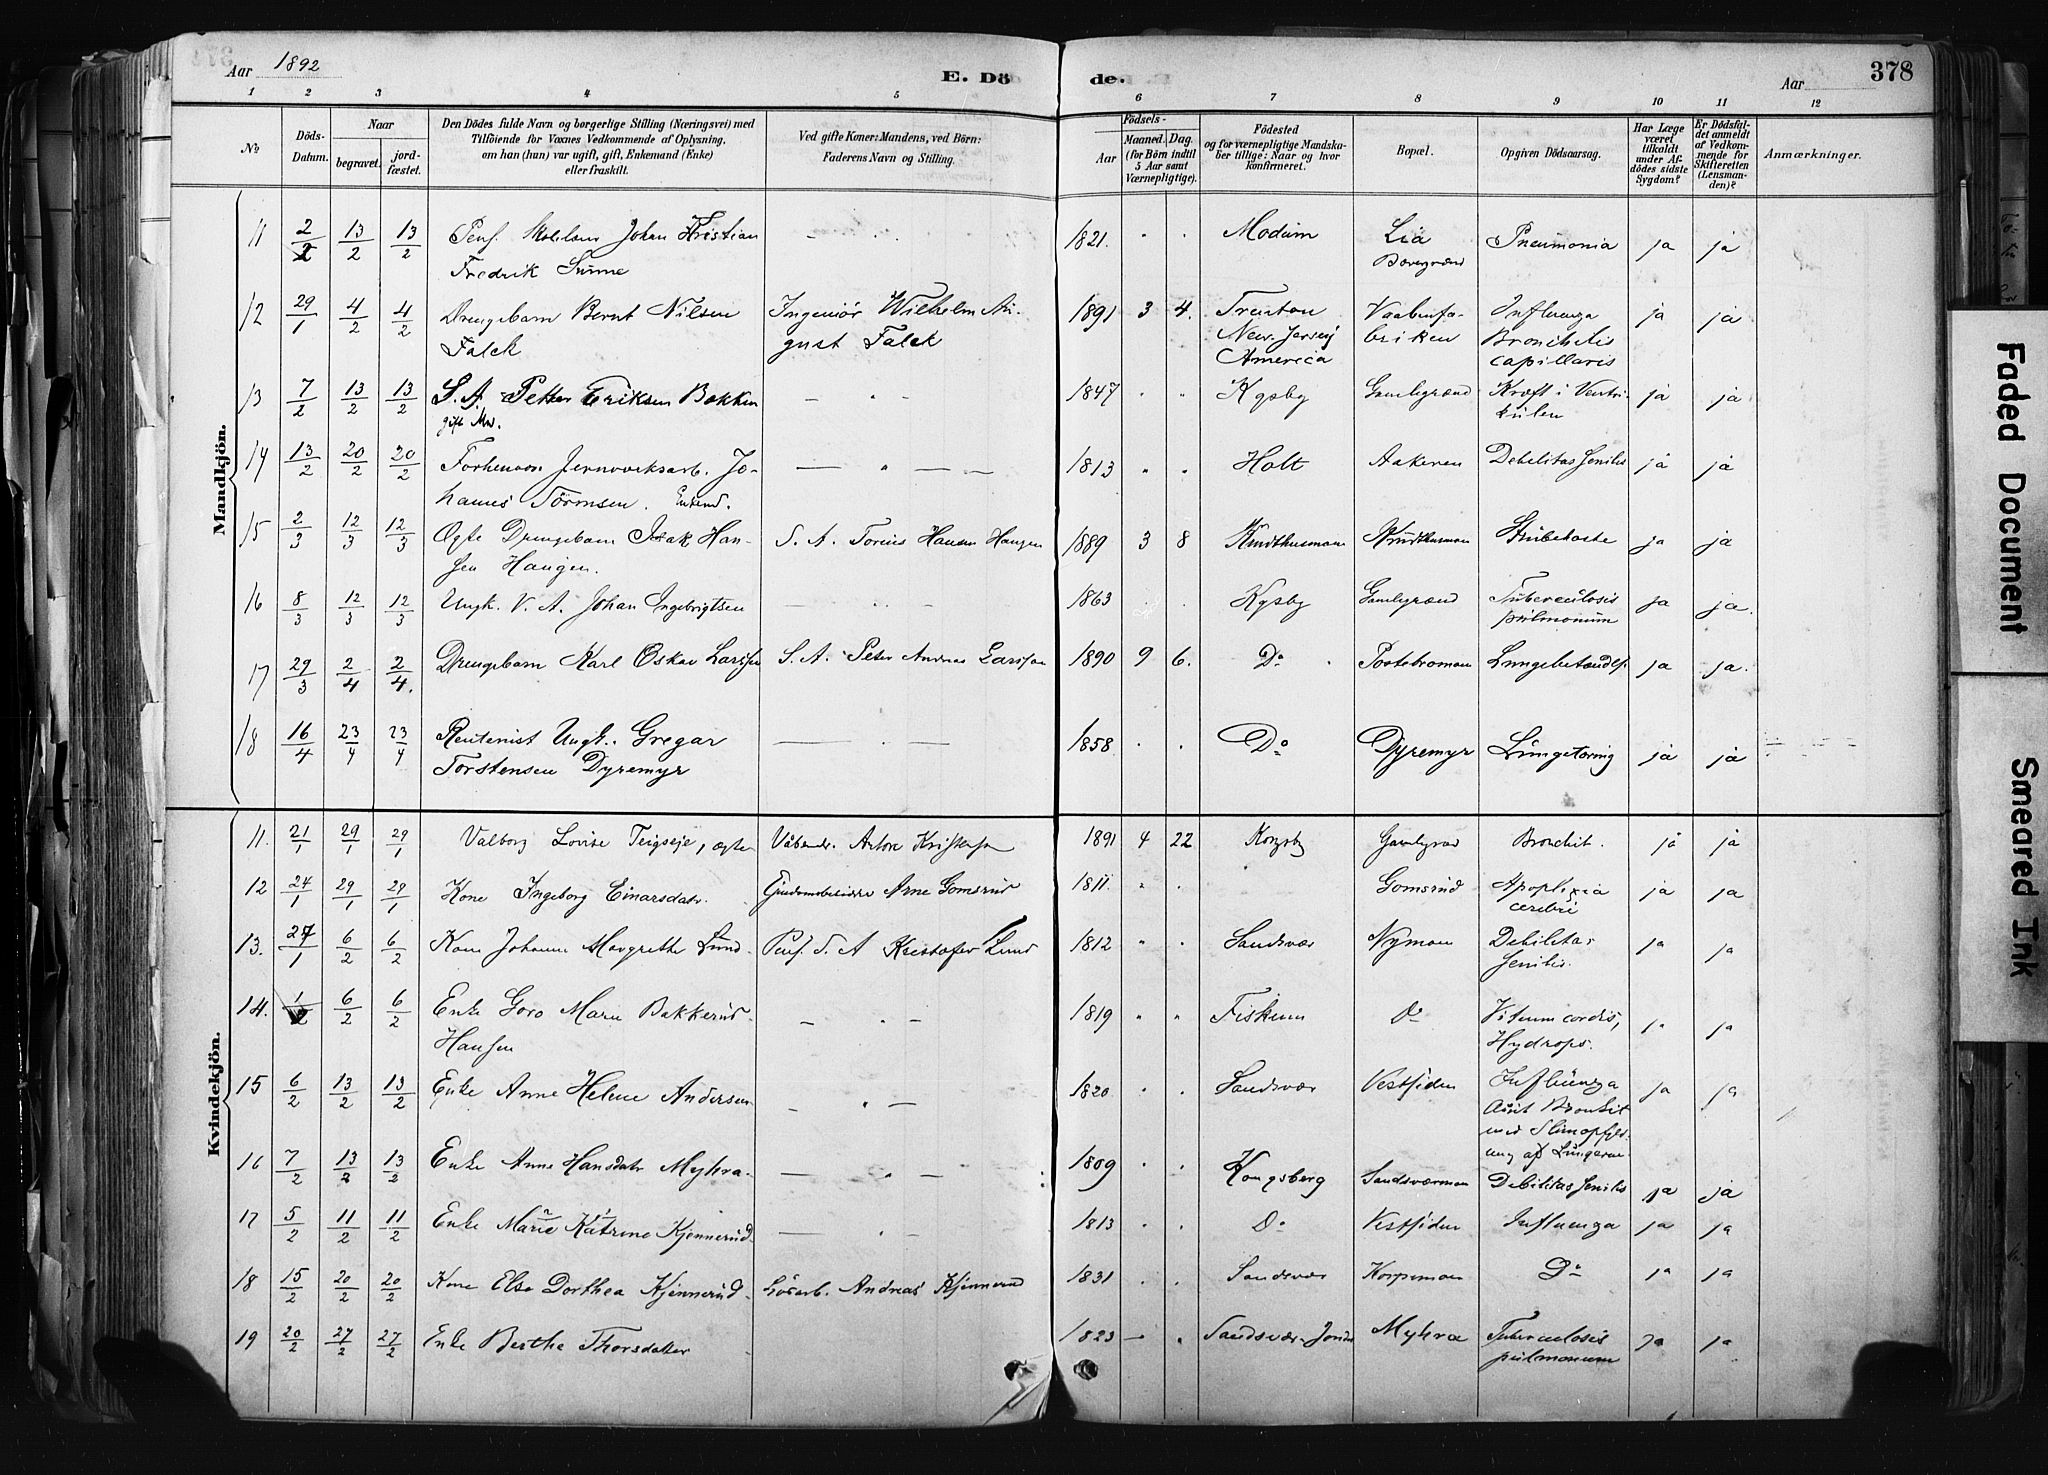 Aar 1892 E. Döde. Aar 378
1 2 3 4 5 6 7 8 9 10 11 12
No
Döds-Datum.
Naar
begravet. jordfæstet.
Den Dödes fulde Navn og borgerlige Stilling (Næringsvei) med
Tilföiende for Voxnes Vedkommende af Oplysning,
om han (hun) var ugift, gift, Enkemand (Enke)
eller fraskilt.
Ved gifte Koner: Mandens, ved Börn:
Faderens Navn og Stilling.
Födsels-
Aar Maaned. Dag.
(for Börn indtil
5 Aar samt
Værnepligtige).
Födested
og for værnepligtige Mandska-
ber tillige: Naar og hvor
konfirmeret.
Bopæl.
Opgiven Dödsaarsag.
Har Læge
været
tilkaldt
under Af-
dödes sidste
Sygdom?
Er Dödsfal-
det anmeldt
af Vedkom-
mende for
Skifteretten
(Lensman-
den)?
Anmærkninger.
Mandkjön.
11 2/2 13/2 13/2 Johan Kristian 1821. " " Modum Lia Pneumonia ja ja
Fredrik
12 29/1 4/2 4/2 Drengebarn Bernt Nilsen Ingeniör Wilhelm Au- 1891 3 4. Trenton Vaabenfa- Influenza ja ja
Falck gust Falck New-Jersey briken Bronchitis
America capillaris
13 7/2 13/2 13/2 S. A. Petter Eriksen Bakken — " — 1847 " " Kgsbg Gamlegrænd Kræft i Ventri- ja ja
gift Md. külen
14 13/2 20/2 20/2 Forhenv. Jernverksarb. Jo- — " — 1813 " " Holt Aakeren Debilitas senilis ja ja
hannes Enkemd.
15 2/3 12/3 12/3 Ægte Drengebarn Isak Han- S. A. Hansen Haugen 1889 3 8 Strübehoste ja ja
sen Haugen.
16 8/3 12/3 12/3 Ungk. V. A. Johan Ingebrigtsen — — 1863 . . Kgsbg Gamlegrænd Tüberculosis ja ja.
pülmonüm
17 29/3 2/4 2/4. Drengebarn Karl Oskar Larssen S. A. Peter Andreas Larssen 1890 9 6. Do Lungebetændels. ja ja.
18 16/4 23/4 23/4 Rentenist Ungk. Gregar — " — 1858 . . Do Dyremyr Lüngetæring ja ja
Torstensen Dyremyr
Kvindekjön.
11. 21/1 29/1 29/1 Valborg Lovise Teigseje, ægte 1891 4 22 Kongsbg Bronchit. ja ja
12 24/1 29/1 29/1 Kone Ingeborg Einarsdatr. Arne Gomsrud 1811. " " Gomsrud Apoplexia ja ja
cerebri
13. 27/1 6/2 6/2 Kone Johanne Margrethe Lund Pens. S. A Kristofer Lund 1812 " " Sandsvær Nymoen Debilitas ja ja
senilis.
14. 1/2 6/2 6/2 Enke Goro Marie Bakkerud — " — 1819 " " Fiskum Do Vitium cordis, ja ja
Hansen Hydrops.
15 6/2 13/2 13/2 Enke Anne Helene Andersen — " — 1820 . . Sandsvær Vestsiden Influenza ja ja
med Slimopfyld-
ning af Lüngerne
16 7/2 13/2 13/2 Enke Anne Hansdatr Myhra — " — 1809 . . Kongsberg Sandsværmoen Debilitas senilis ja ja
17 5/2 11/2 11/2 Enke Marie Katrine Kjennerüd — " — 1813 . . Do Vestsiden Influenza ja ja
18 15/2 20/2 20/2 Kone Else Dorthea Kjennerüd Lösarb. Andreas Kjennerud 1831 . . Sandsvær Do ja ja
19 20/2 27/2 27/2 Enke Berthe Thorsdatter 1823 — " Myhra Tuberculosis ja ja
pulmonum
Faded Document
Smeared Ink